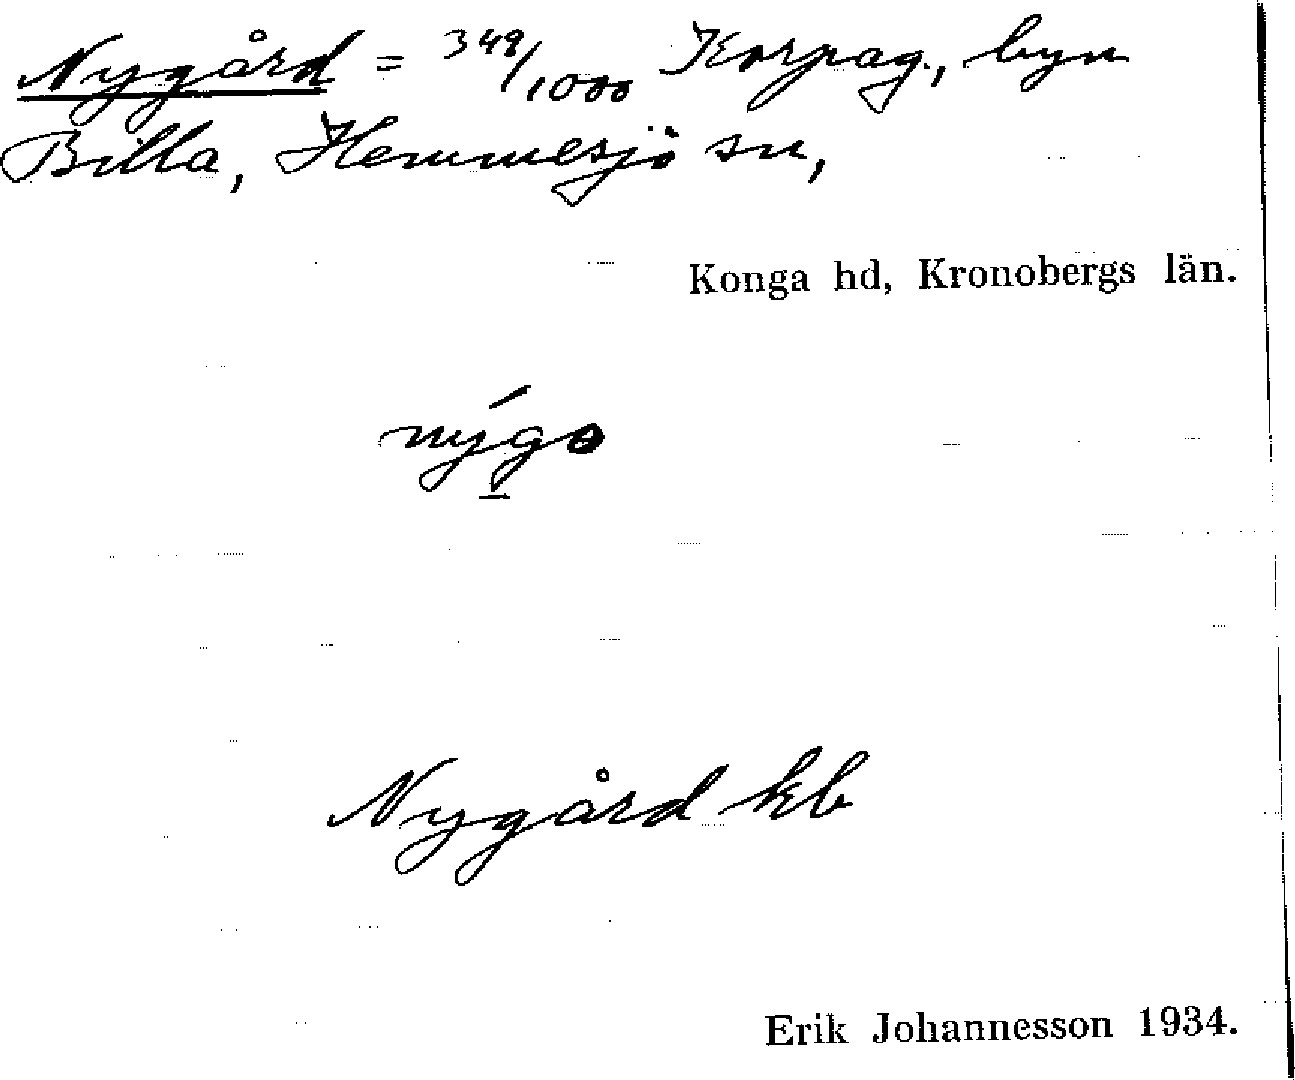 Nygård = 348/1000 Korpag., byn
Billa, Hemmesjö sn,
Konga hd, Kronobergs län.
nýgo
Nygård kb
Erik Johannesson 1934.